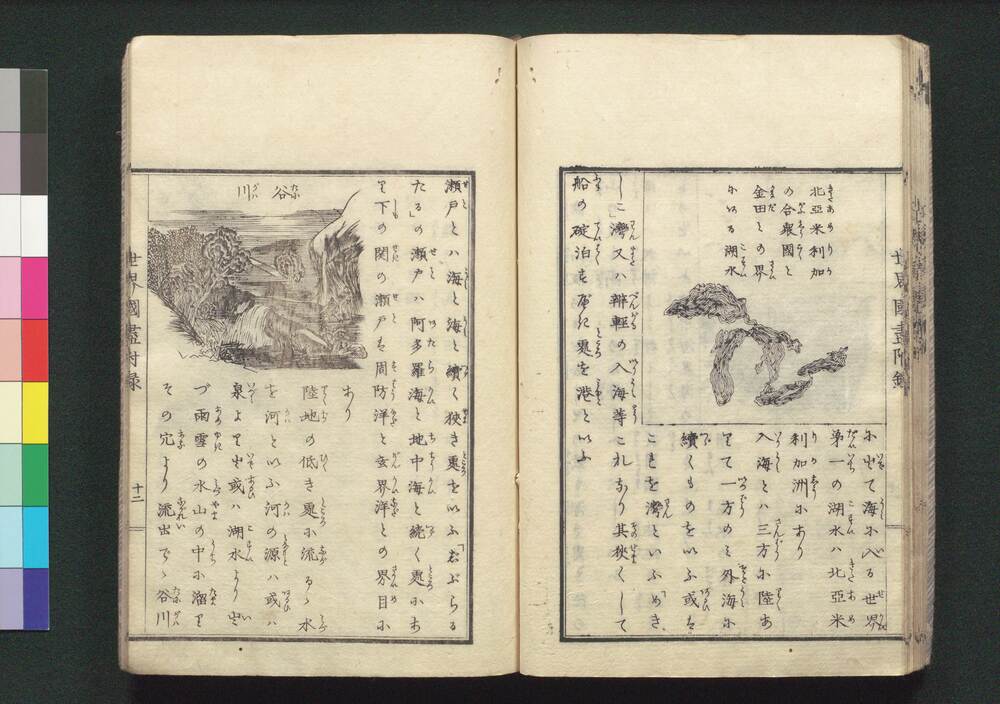 北亞米利加
の合衆國と
金田との界
にある湖水
に出て海に入る世界
第一の湖水ハ北亞米
利加洲にあり
入海とハ三方に陸あ
りて一方のミ外海に
續くものをいふ或は
これを灣といふ「めき
しこ灣又ハ辨輕の入海等これなり其狹くして
船の碇泊すべき處を港といふ
世界國盡附録
瀬戸とハ海と海と續く狹き處をいふ「じぶらる
たる」の瀬戸ハ阿多羅海と地中海と續く處にあ
り下の関の瀬戸は周防洋と玄界洋との界目に
あり
谷川
陸地の低き處に流るゝ水
を河といふ河の源ハ或ハ
泉より出或ハ湖水より出
づ雨雪の水山の中に溜り
その穴より流出でゝ谷川
世界國盡附録
十二